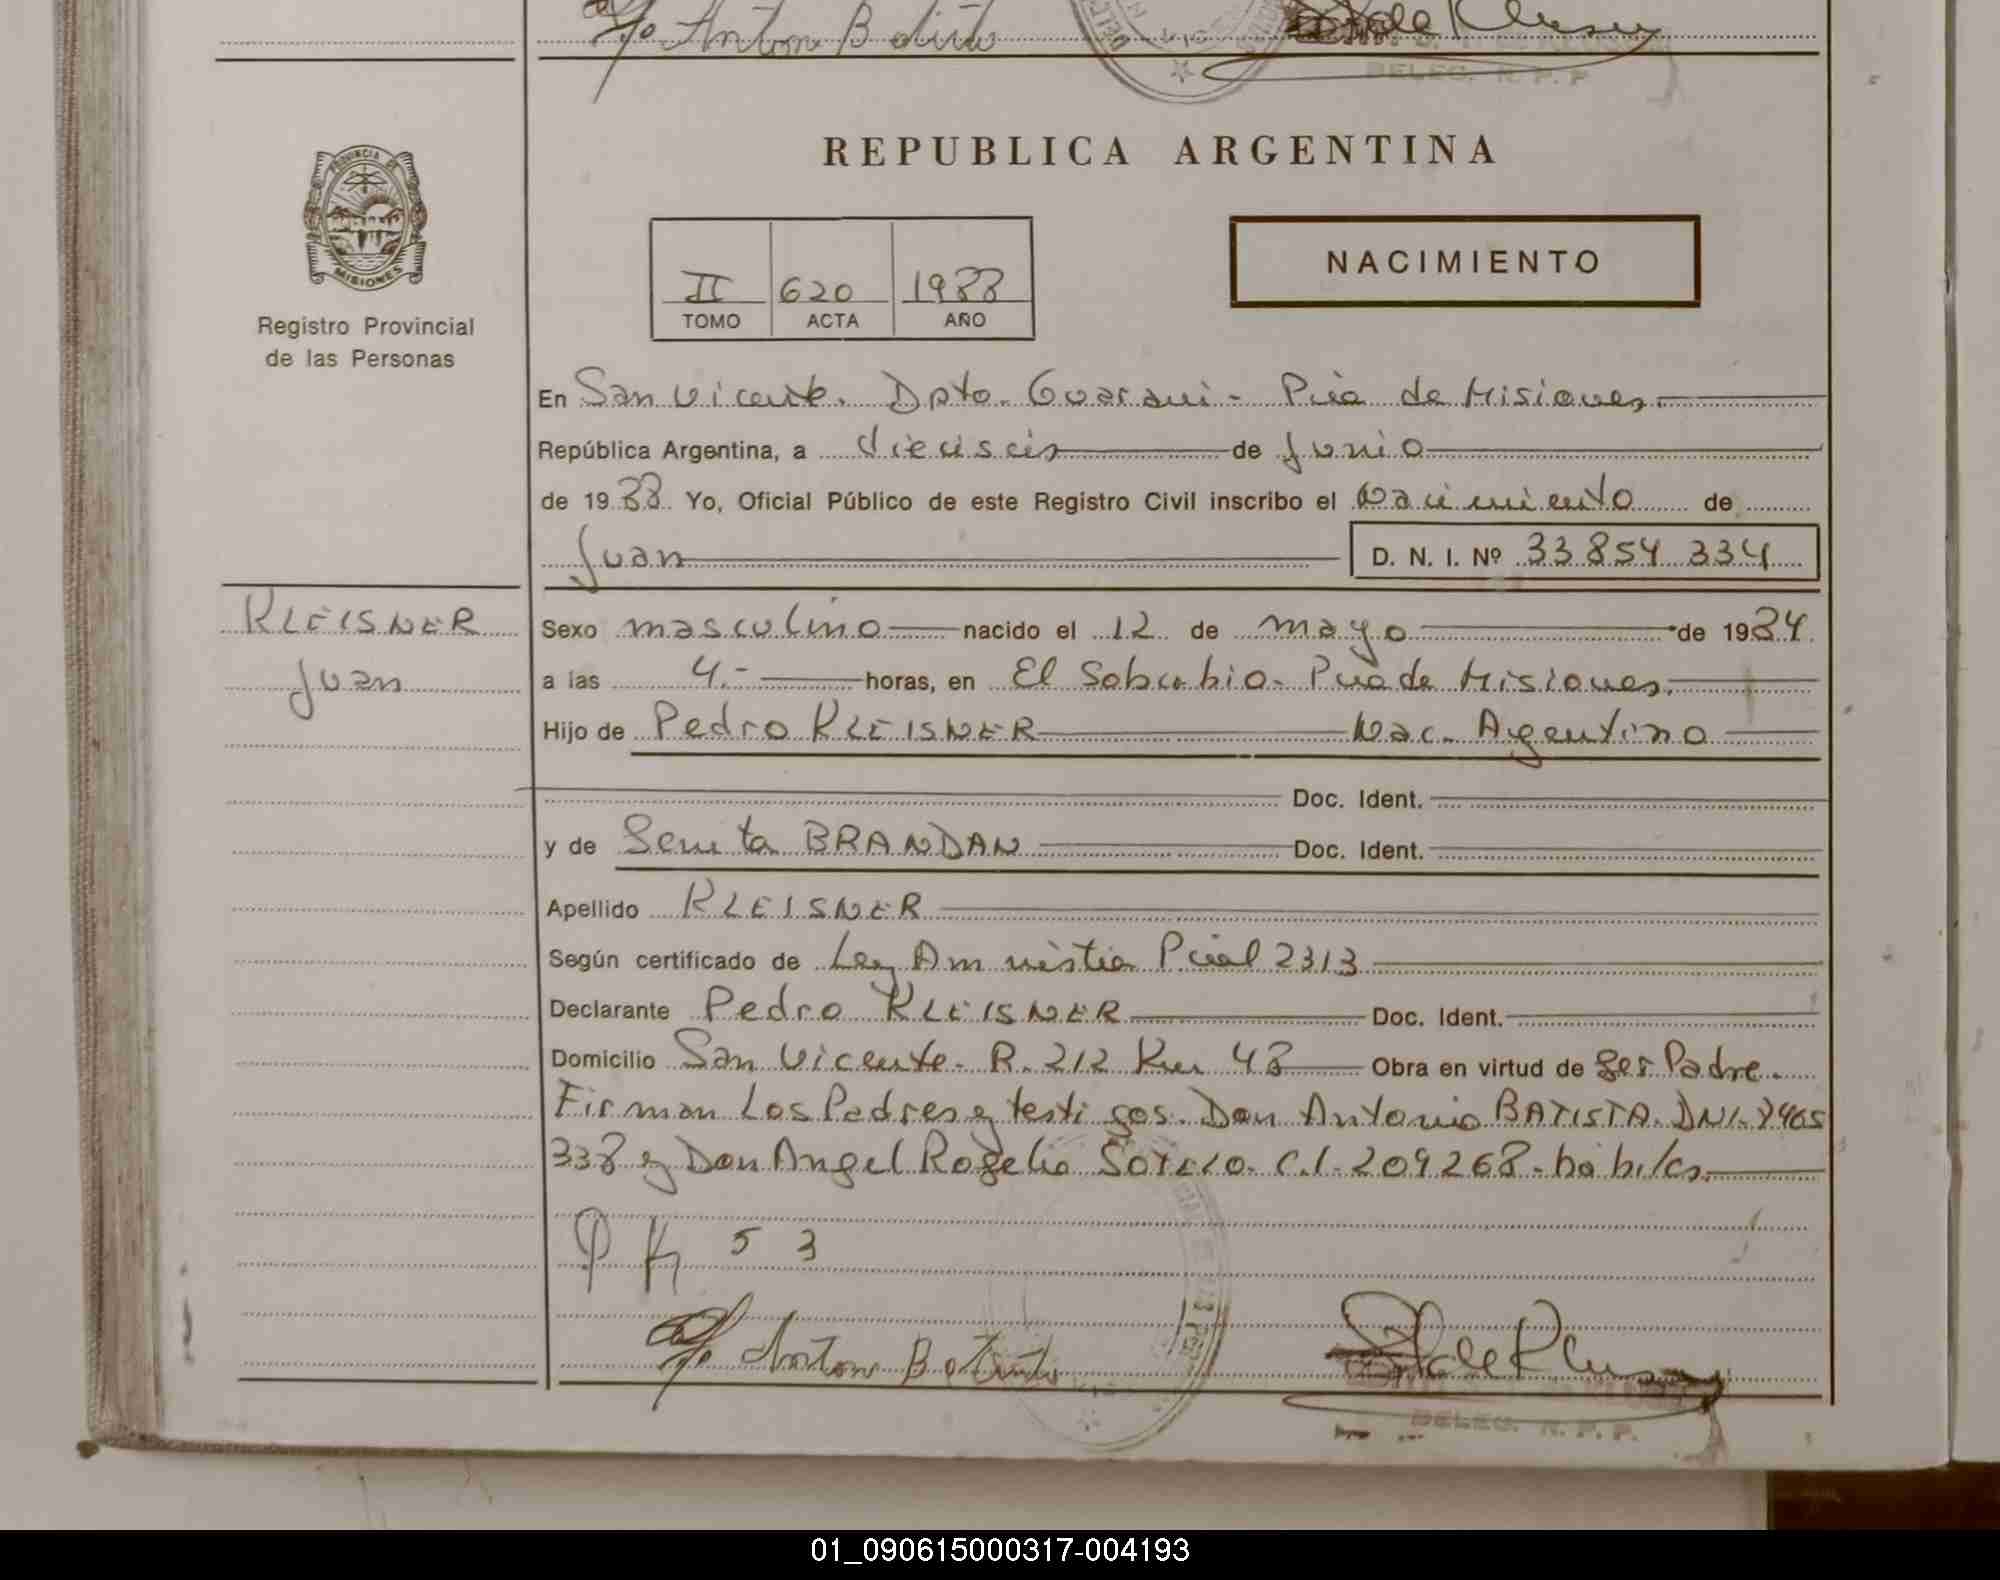 Anton Batista
DELEG. R. P. P.
PROVINCIA DE
MISIONES
Registro Provincial
de las Personas
REPUBLICA ARGENTINA
II 620 1988
TOMO ACTA AÑO
NACIMIENTO
En San Vicente. Dpto. Guarani - Pcia de Misiones.
República Argentina, a dieciseis de Junio
de 1988 Yo, Oficial Público de este Registro Civil inscribo el Nacimiento de
Juan D. N. I. Nº 33 854 334
KLEISNER
Juan
Sexo masculino nacido el 12 de mayo de 1984
a las 4.- horas, en El Soberbio - Pcia de Misiones.
Hijo de Pedro KLEISNER Nac. Argentino
Doc. Ident.
y de BRANDAN Doc. Ident.
Apellido KLEISNER
Según certificado de Ley Amnistia Pcial 2313
Declarante Pedro KLEISNER Doc. Ident.
Domicilio San Vicente - R. 212 Km 48 Obra en virtud de ser Padre.
Firman Los Padres y testigos. Don Antonio BATISTA. DNI. 7465
338 y Don Angel Rogelio SOTELO. C.I. 209268 - habiles.
P K 5 3
Anton Batista
DELEG. R. P. P.
01_090615000317-004193